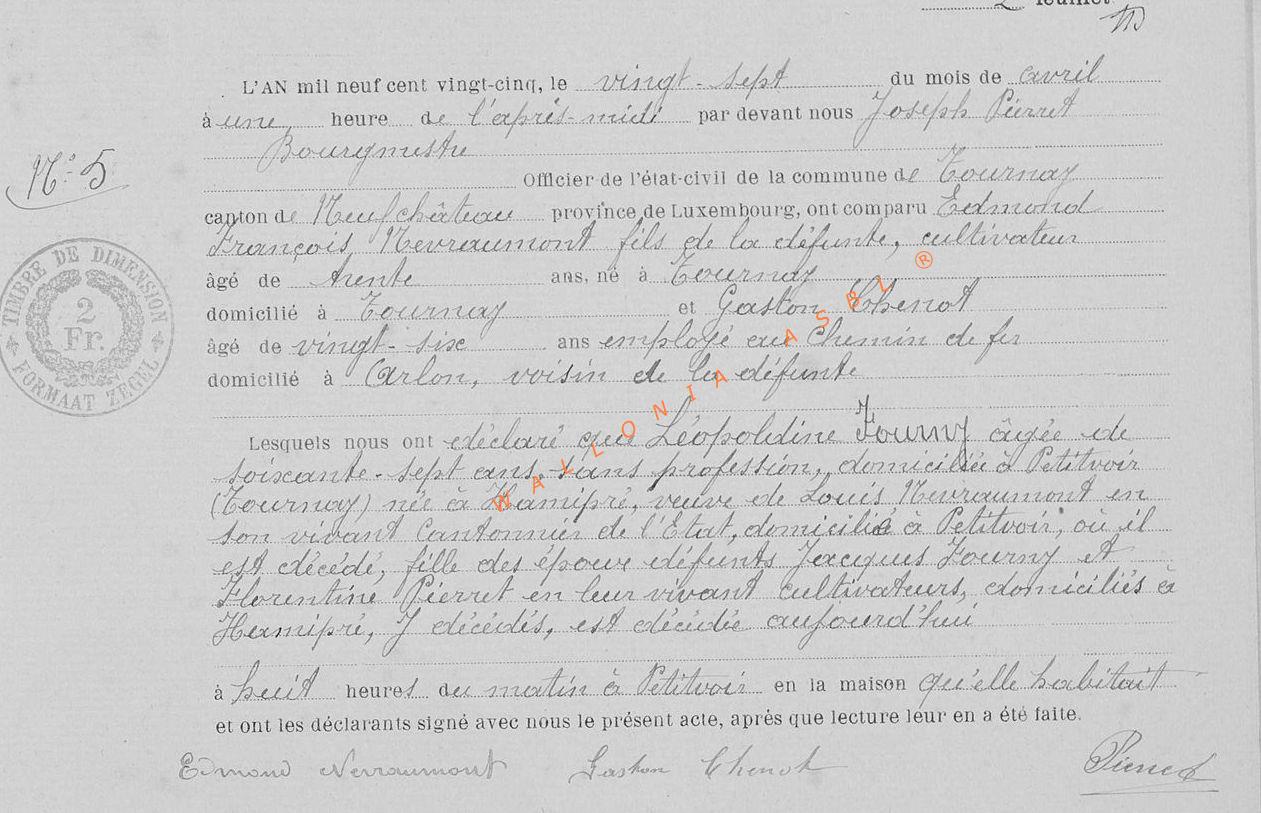 2 feuillet
L'AN mil neuf cent vingt-cinq, le vingt-sept du mois de avril
à une heure de l'après-midi par devant nous Joseph Pierret
Bourgmestre
N° 5
Officier de l'état-civil de la commune de Tournay
canton de Neufchâteau province de Luxembourg, ont comparu Edmond
François Nevraumont fils de la défunte, cultivateur
âgé de trente ans, né à Tournay
domicilié à Tournay et Gaston Chenot
âgé de vingt-six ans employé au Chemin de fer
domicilié à Arlon, voisin de la défunte
Lesquels nous ont déclaré que Léopoldine Fourny âgée de
soixante-sept ans, sans profession, domiciliée à Petitvoir
(Tournay) née à Hamipré, veuve de Louis Nevraumont en
son vivant Cantonnier de l'Etat, domicilié à Petitvoir, où il
est décédé, fille des époux défunts Jacques Fourny et
Florentine Pierret en leur vivant cultivateurs, domiciliés à
Hamipré, y décédés, est décédée aujourd'hui
à huit heures du matin à Petitvoir en la maison qu'elle habitait
et ont les déclarants signé avec nous le présent acte, après que lecture leur en a été faite.
Edmond Nevraumont Gaston Chenot Pierret
TIMBRE DE DIMENSION
2
Fr.
FORMAAT ZEGEL
WALLONIA ASBL ®